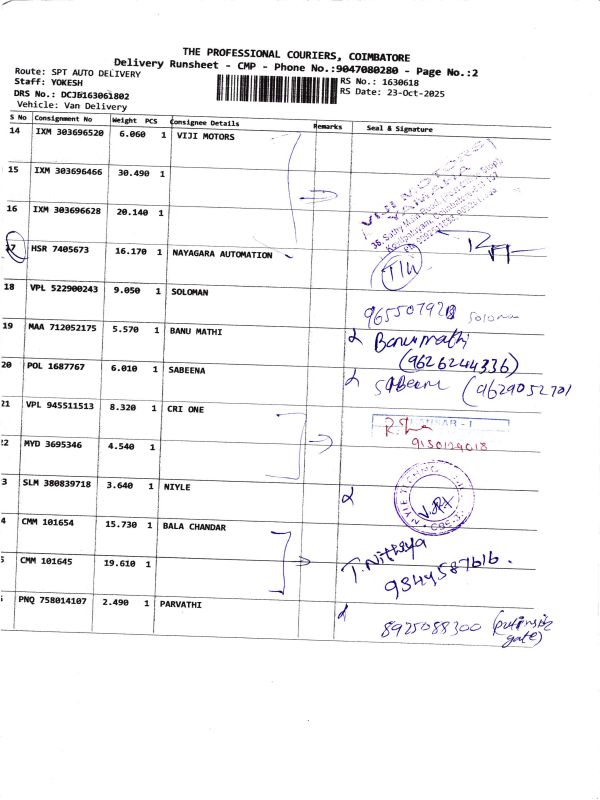 THE PROFESSIONAL COURIERS, COIMBATORE
Delivery Runsheet - CMP - Phone No.:9047080280 - Page No.:2
Route: SPT AUTO DELIVERY
Staff: YOKESH
DRS No.: DCJE163061802
Vehicle: Van Delivery
RS No.: 1630618
RS Date: 23-Oct-2025
S No Consignment No Weight PCS Consignee Details Remarks Seal & Signature
14 IXM 303696520 6.060 1 VIJI MOTORS
15 IXM 303696466 30.490 1
16 IXM 303696628 20.140 1
17 HSR 7405673 16.170 1 NAYAGARA AUTOMATION
18 VPL 522900243 9.050 1 SOLOMAN
19 MAA 712052175 5.570 1 BANU MATHI Banumathi
(9626244336)
20 POL 1687767 6.010 1 SABEENA (9629052701
21 VPL 945511513 8.320 1 CRI ONE
9150129018
22 MYD 3695346 4.540 1
3 SLM 380839718 3.640 1 NIYLE
4 CMM 101654 15.730 1 BALA CHANDAR T. Nithya
5 CMM 101645 19.610 1 9344587616.
PNQ 758014107 2.490 1 PARVATHI
8925088300
gate)